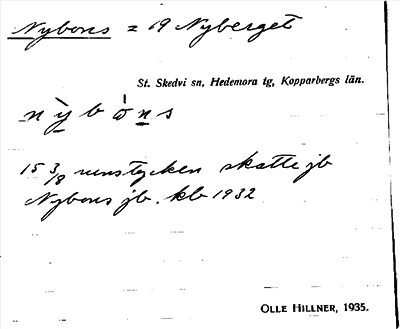 Nybons = 19 Nyberget
St. Skedvi sn, Hedemora tg, Kopparbergs län.
nỳbòns
15 3/8 runstycken skatte jb
Nybons jb. kb 1932
OLLE HILLNER, 1935.